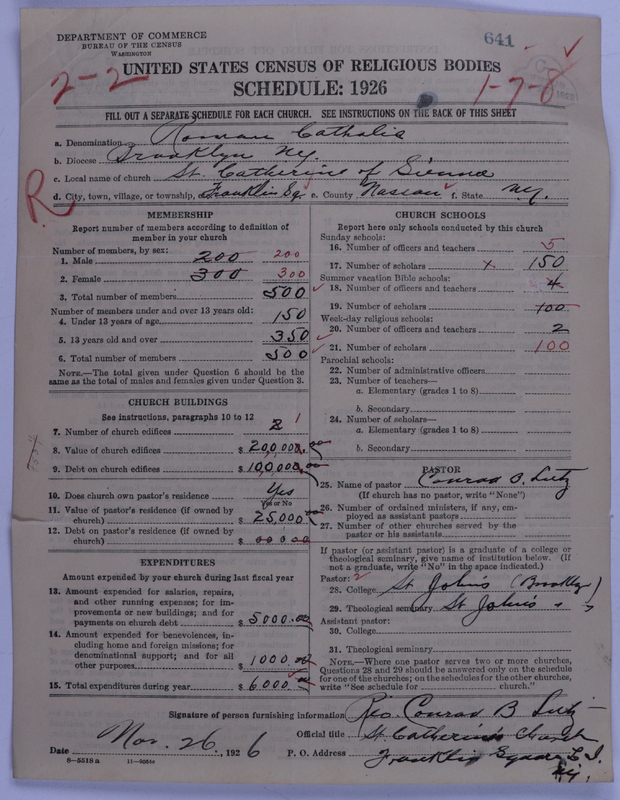 DEPARTMENT OF COMMERCE
BUREAU OF THE CENSUS
WASHINGTON
641
2-2
UNITED STATES CENSUS OF RELIGIOUS BODIES
SCHEDULE: 1926
1-7-8
FILL OUT A SEPARATE SCHEDULE FOR EACH CHURCH. SEE INSTRUCTIONS ON THE BACK OF THIS SHEET
a. Denomination Roman Catholic
b. Diocese Brooklyn NY.
c. Local name of church St. Catherine of Sienna
R
d. City, town, village, or township, Franklin Sq. e. County Nassau f. State NY.
MEMBERSHIP
Report number of members according to definition of
member in your church
Number of members, by sex:
1. Male 200 200
2. Female 300 300
3. Total number of members 500
Number of members under and over 13 years old:
4. Under 13 years of age 150
5. 13 years old and over 350
6. Total number of members 500
NOTE.—The total given under Question 6 should be
the same as the total of males and females given under Question 3.
CHURCH BUILDINGS
See instructions, paragraphs 10 to 12
7. Number of church edifices 2 1
8. Value of church edifices $ 200,000.00
9. Debt on church edifices $ 100,000.00
10. Does church own pastor's residence Yes
Yes or No
11. Value of pastor's residence (if owned by
church) $ 25,000
12. Debt on pastor's residence (if owned by
church) $ 00000
EXPENDITURES
Amount expended by your church during last fiscal year
13. Amount expended for salaries, repairs,
and other running expenses; for im-
provements or new buildings; and for
payments on church debt $ 5000.00
14. Amount expended for benevolences, in-
cluding home and foreign missions; for
denominational support; and for all
other purposes $ 1000.00
15. Total expenditures during year $ 6000.00
CHURCH SCHOOLS
Report here only schools conducted by this church
Sunday schools:
16. Number of officers and teachers 5
17. Number of scholars x 150
Summer vacation Bible schools:
18. Number of officers and teachers 4
19. Number of scholars 100
Week-day religious schools:
20. Number of officers and teachers 2
21. Number of scholars 100
Parochial schools:
22. Number of administrative officers
23. Number of teachers—
a. Elementary (grades 1 to 8)
b. Secondary
24. Number of scholars—
a. Elementary (grades 1 to 8)
b. Secondary
PASTOR
25. Name of pastor Conrad B. Lutz
(If church has no pastor, write "None")
26. Number of ordained ministers, if any, em-
ployed as assistant pastors
27. Number of other churches served by the
pastor or his assistants
If pastor (or assistant pastor) is a graduate of a college or
theological seminary, give name of institution below. (If
not a graduate, write "No" in the space indicated.)
Pastor: 2
28. College St John's (Brooklyn)
29. Theological seminary St John's " "
Assistant pastor:
30. College
31. Theological seminary
NOTE.—Where one pastor serves two or more churches,
Questions 28 and 29 should be answered only on the schedule
for one of the churches; on the schedules for the other churches,
write "See schedule for church."
Signature of person furnishing information Rev. Conrad B Lutz
Official title St. Catherine Church
Date Nov. 26, 1926 P. O. Address Franklin Square L. I.
NY.
8-5518 a